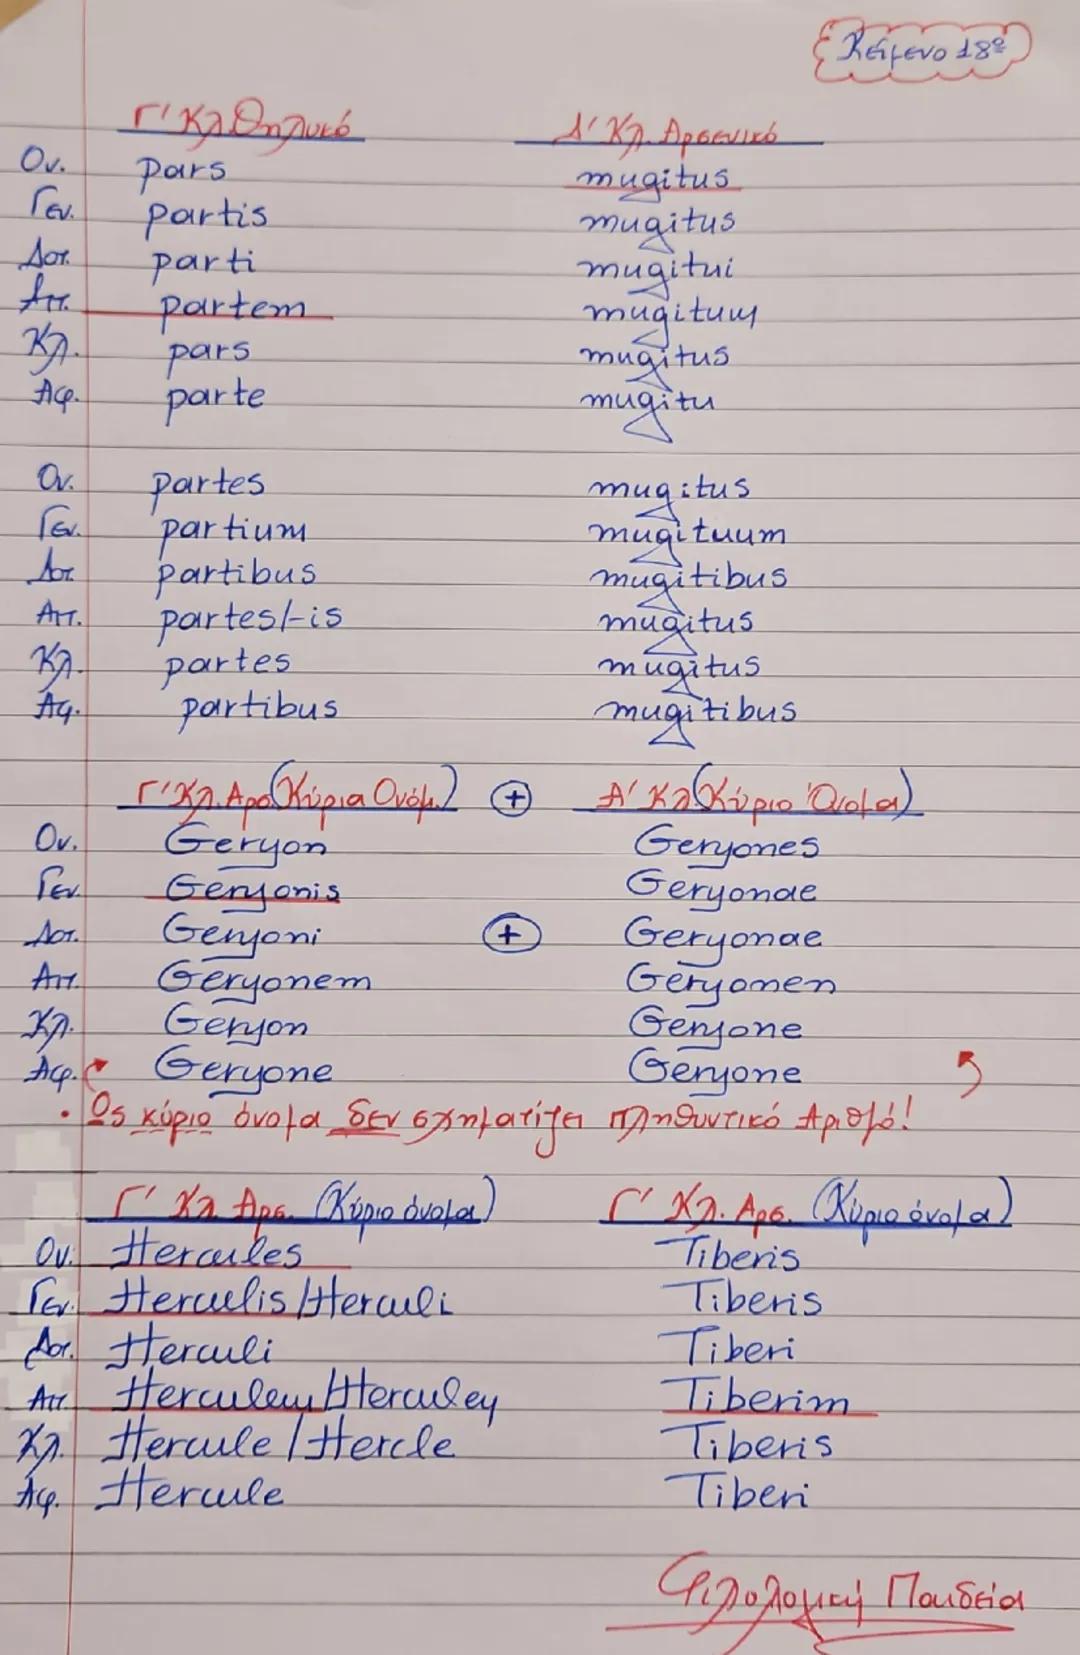 Κείμενο 18º
Γ' Κλ. Θηλυκό Δ' Κλ. Αρσενικό
Ον. pars mugitus
Γεν. partis mugitus
Δοτ. parti mugitui
Αιτ. partem mugitum
Κλ. pars mugitus
Αφ. parte mugitu
Ον. partes mugitus
Γεν. partium mugituum
Δοτ. partibus mugitibus
Αιτ. partes/-is mugitus
Κλ. partes mugitus
Αφ. partibus mugitibus
Γ' Κλ. Αρσ. (Κύρια Ονόμ.) + Α' Κλ (Κύριο Όνομα)
Ον. Geryon Geryones
Γεν. Geryonis Geryonae
Δοτ. Geryoni + Geryonae
Αιτ. Geryonem Geryonen
Κλ. Geryon Geryone
Αφ. Geryone Geryone
• Ως κύριο όνομα δεν σχηματίζει πληθυντικό Αριθμό!
Γ' Κλ. Αρσ. (Κύριο όνομα) Γ' Κλ. Αρσ. (Κύριο όνομα)
Ον. Hercules Tiberis
Γεν. Herculis/Herculi Tiberis
Δοτ. Herculi Tiberi
Αιτ. Herculem/Herculey Tiberim
Κλ. Hercule/Hercle Tiberis
Αφ. Hercule Tiberi
Φιλολογική Παιδεία